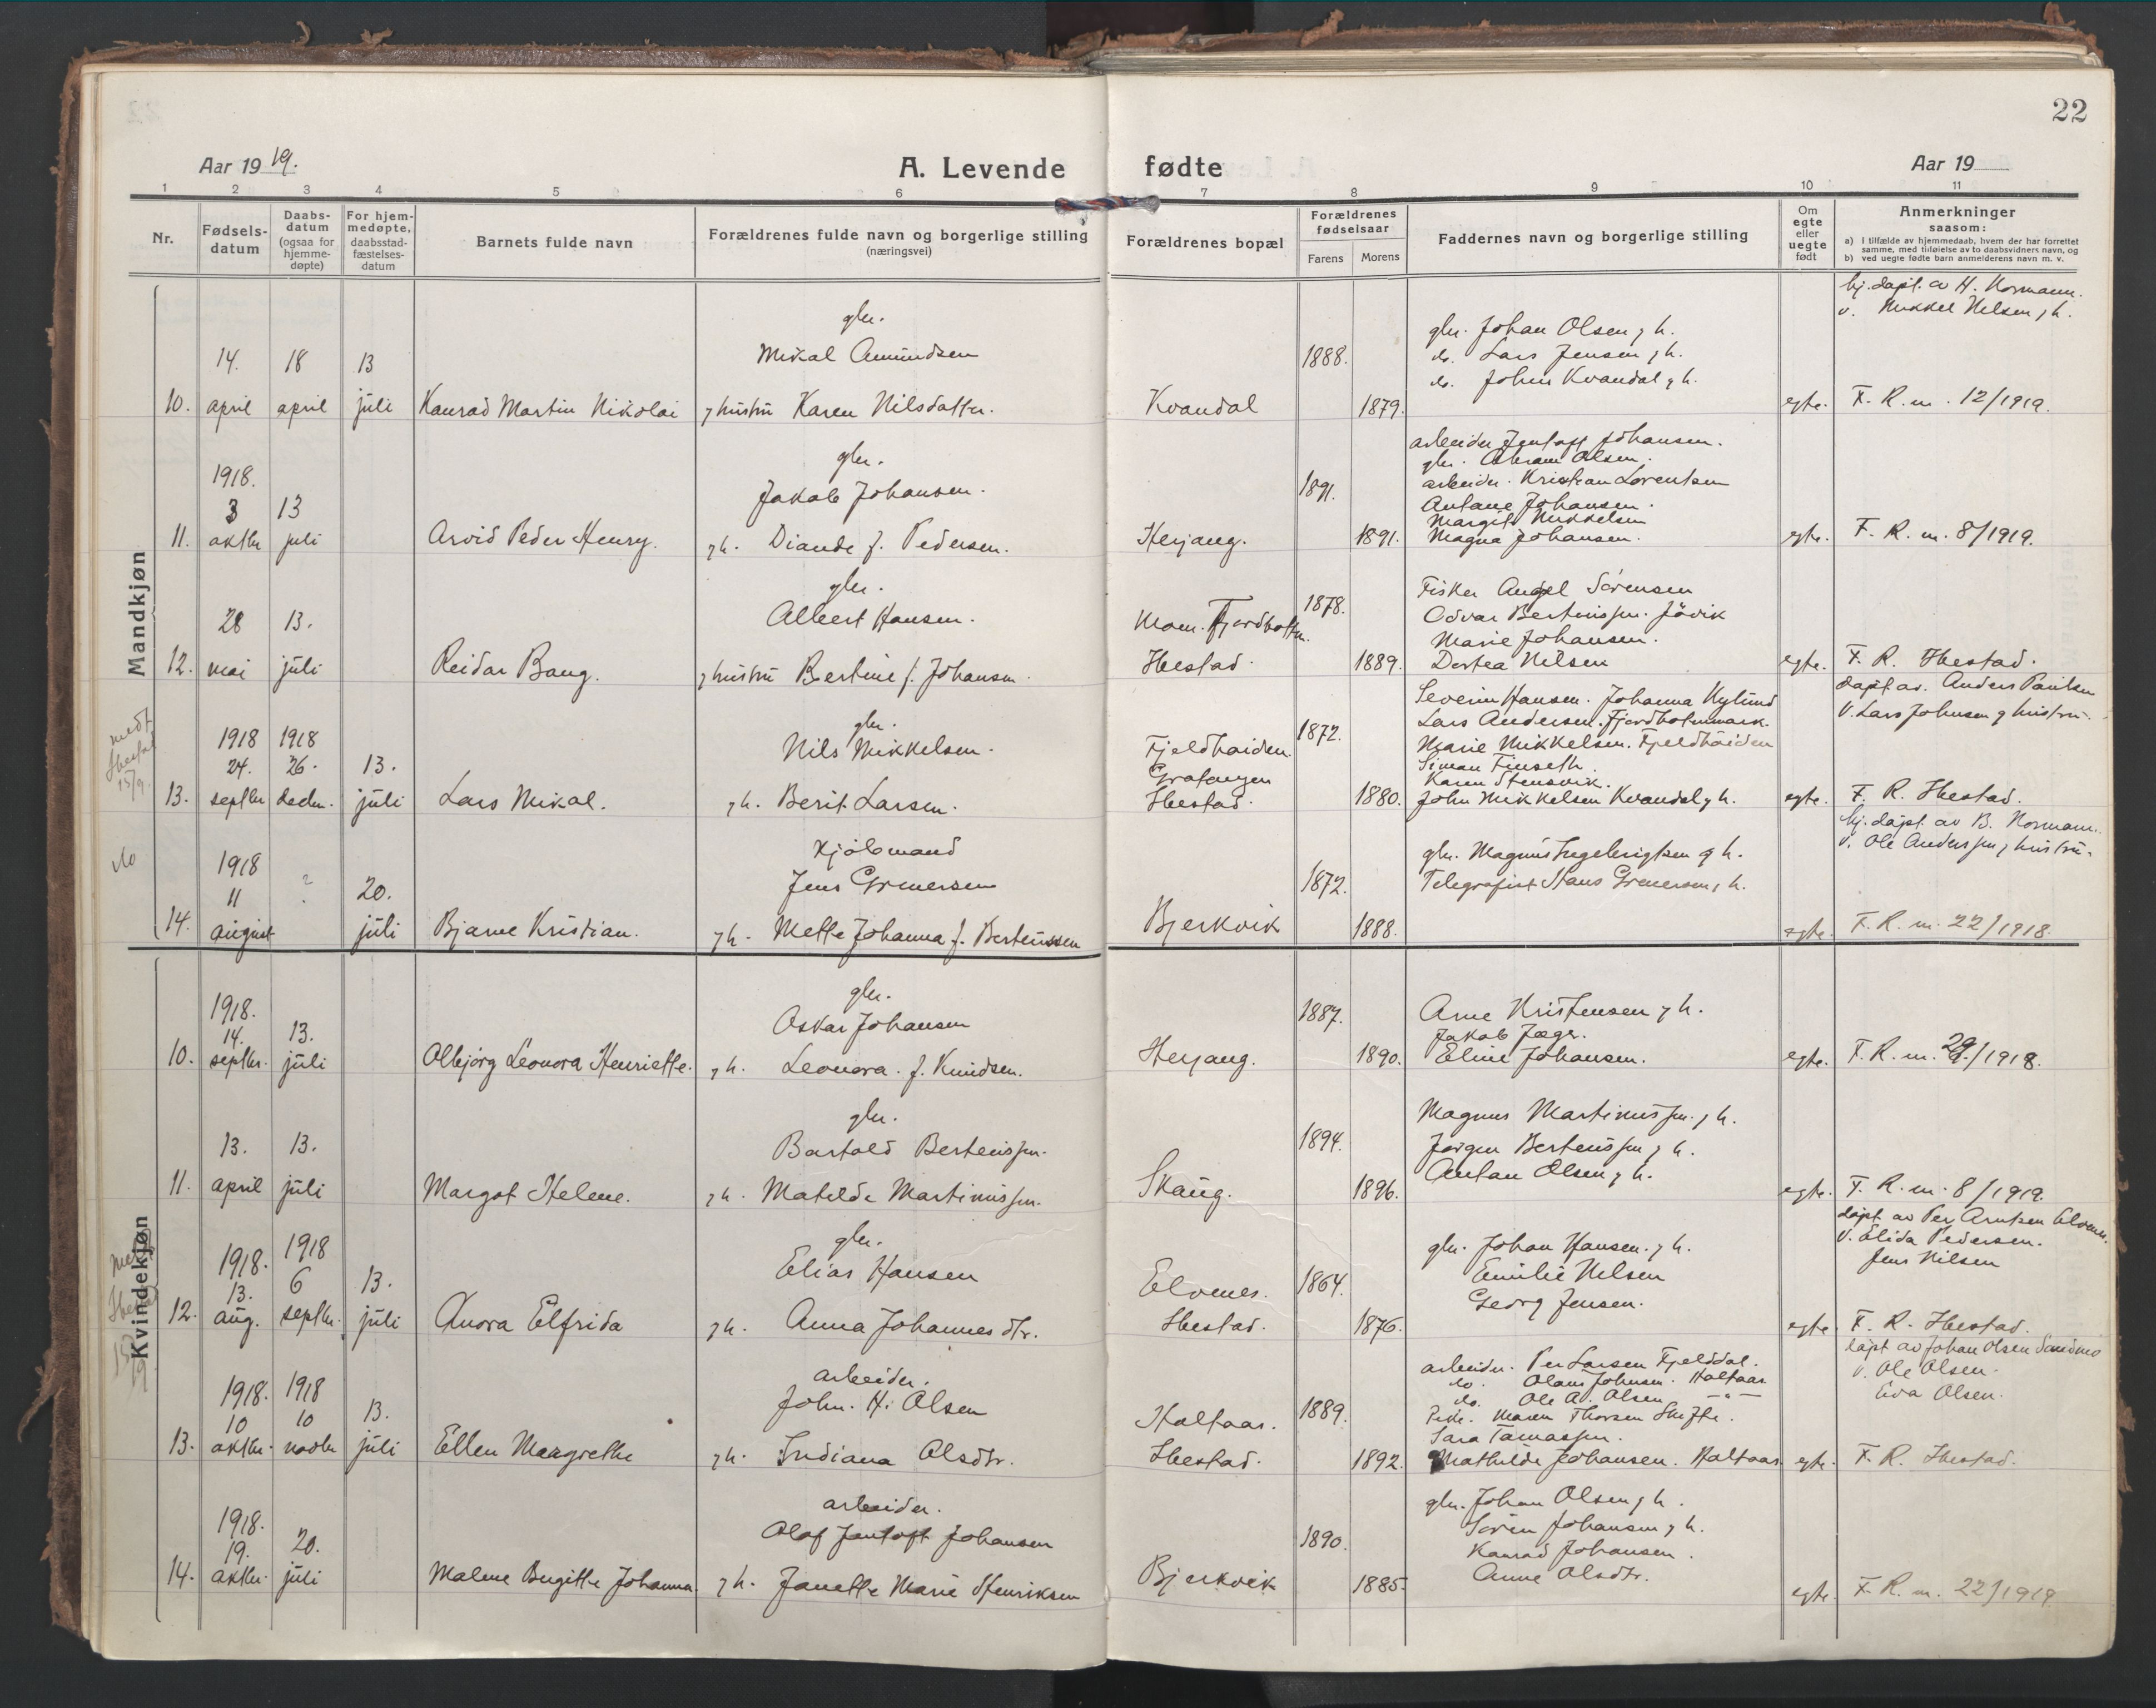 22
Aar 1919.
A. Levende fødte
Aar 19
1 2 3 4 5 6 7 8 9 10 11
Nr.
Fødsels-
datum
Daabs-
datum
(ogsaa for
hjemme-
døpte)
For hjem-
medøpte,
daabsstad-
fæstelses-
datum
Barnets fulde navn
Forældrenes fulde navn og borgerlige stilling
(næringsvei)
Forældrenes bopæl
Forældrenes
fødselsaar
Farens
Morens
Faddernes navn og borgerlige stilling
Om
egte
eller
uegte
født
Anmerkninger
saasom:
a) I tilfælde av hjemmedaab, hvem der har forrettet
samme, med tilføielse av to daabsvidners navn, og
b) ved uegte fødte barn anmelderens navn m. v.
Mandkjøn
10.
14.
april
18
april
13
juli
Konrad Martin Nikolai
gbr.
Mikal Amundsen
g hustru Karen Nilsdatter.
Kvandal
1888.
1879.
gbr. Johan Olsen g h.
do. Lars Jensen g h.
do. Johan Kvandal g h.
egte.
hj. døpt. av H. Normann.
v. Mikkel Nilsen g h.
F. R. m. 12/1919.
11.
1918.
3
oktbr
13
juli
Arvid Peder Henry.
gbr.
Jakob Johansen.
g h. Diande f. Pedersen.
Herjang.
1891.
1891.
arbeider Jentoft Johansen.
gbr. Abram Olsen.
arbeider. Kristian Lorentsen
Antane Johansen.
Margit Mikkelsen
Magna Johansen.
egte.
F. R. m. 8/1919.
12.
28
mai
13.
juli
Reidar Baug.
gbr.
Albert Hansen.
g hustru Bertine f. Johansen.
Moen. Fjordbotten.
Ibestad.
1878.
1889.
Fisker Angel Sørensen
Odvar Bertinussen. Jövik
Marie Johansen.
Dortea Nilsen
egte.
F. R. Ibestad.
medt
Ibestad
15/9
13.
1918
24.
septbr
1918
26.
decbr.
13.
juli
Lars Mikal.
gbr.
Nils Mikkelsen.
g h. Berit Larsen.
Fjeldhøiden.
Gratangen
Ibestad.
1872.
1880.
Severin Hansen. Johanna Nylund
Lars Andersen. Fjordbotnmark.
Marie Mikkelsen. Fjeldhøiden
Simon Finseth.
Karen Stensvik.
John Mikkelsen Kvandal g h.
egte.
døpt av. Anders Paulsen
v. Lars Johnsen g hustru.
F. R. Ibestad.
do
14.
1918
11
august
?
20.
juli
Bjarne Kristian.
Kjøbmand
Jens Grenersen
g h. Mette Johanna f. Berteussen
Bjerkvik
1872.
1888.
gbr. Magnus Ingebrigtsen g h.
Telegrafist Hans Grenersen g h.
egte.
hj. døpt av B. Normann.
v. Ole Anderssen g hustru.
F. R. m. 22/1918.
Kvindekjøn
10.
1918.
14.
septbr.
13.
juli
Olbjørg Leonora Henriette.
gbr.
Oskar Johansen
g h. Leonora. f. Knudsen.
Herjang.
1887.
1890.
Arne Kristensen g h.
Jakob Jæger.
Eline Johansen.
egte.
F. R. m. 29/1918.
11.
13.
april
13.
juli
Margot Helene.
gbr.
Bartold Berteussen.
g h. Matilde Martinussen.
Skaug.
1894.
1896.
Magnus Martinussen. g h.
Jørgen Berteussen g h.
Anton Olsen g h.
egte.
F. R. m. 8/1919.
12.
1918.
13.
aug.
1918
6
septbr.
13.
juli
Anora Elfrida
gbr.
Elias Hansen
g h. Anna Johannesdtr.
Elvenes.
Ibestad.
1864.
1876.
gbr. Johan Hansen. g h.
Emilie Nilsen
Georg Jensen.
egte
døpt av Per Arntsen Elvenes.
v. Elida Pedersen.
Jens Nilsen
F. R. Ibestad.
13.
1918.
10
oktbr.
1918
10
novbr
13.
juli
Ellen Margrethe
arbeider.
John. H. Olsen
g h. Indiana Olsdtr.
Holtaas.
Ibestad.
1889.
1892.
arbeider. Per Larsen Fjelddal.
do. Olaus Johnsen. Holtaas
do. Ole Ad. Olsen —"—
Pike. Maren Thorsen Skifte.
Sara Tomassen.
Mathilde Johansen. Holtaas
egte.
døpt av Johan Olsen Sandmo
v. Ole Olsen.
Eva Olsen.
F. R. Ibestad.
14.
1918.
19.
oktbr.
20.
juli
Malene Birgitte Johanna
arbeider.
Olaf Jentoft Johansen
g h. Janette Marie Henriksen
Bjerkvik
1890.
1885.
gbr. Johan Olsen g h.
Sören Johansen g h.
Konrad Johansen.
Anne Olsdtr.
egte.
F. R. m. 22/1919